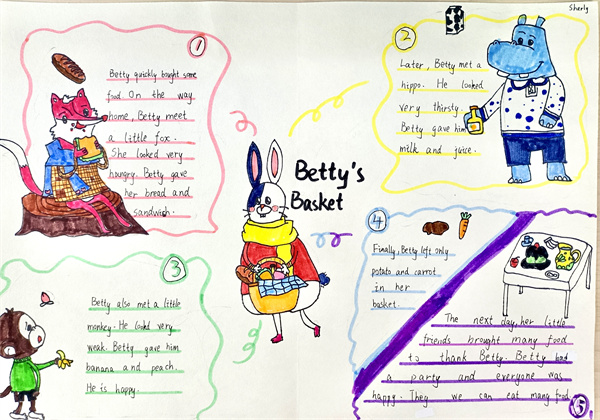 Sherly
Betty's
Basket
1
Betty quickly bought some
food. On the way
home, Betty meet
a little fox.
She looked very
houngry. Betty gave
her bread and
sandwich.
2
Later, Betty met a
hippo. He looked
very thirsty.
Betty gave him
milk and juice.
3
Betty also met a little
monkey. He lookd very
weak. Betty gave him
banana and peach.
He is happy.
4
Finally, Betty left only
potato and carrot
in her
basket.
The next day, her little
friends brought many food
to thank Betty. Betty had
a party and everyone was
happy. They we can eat many food
5